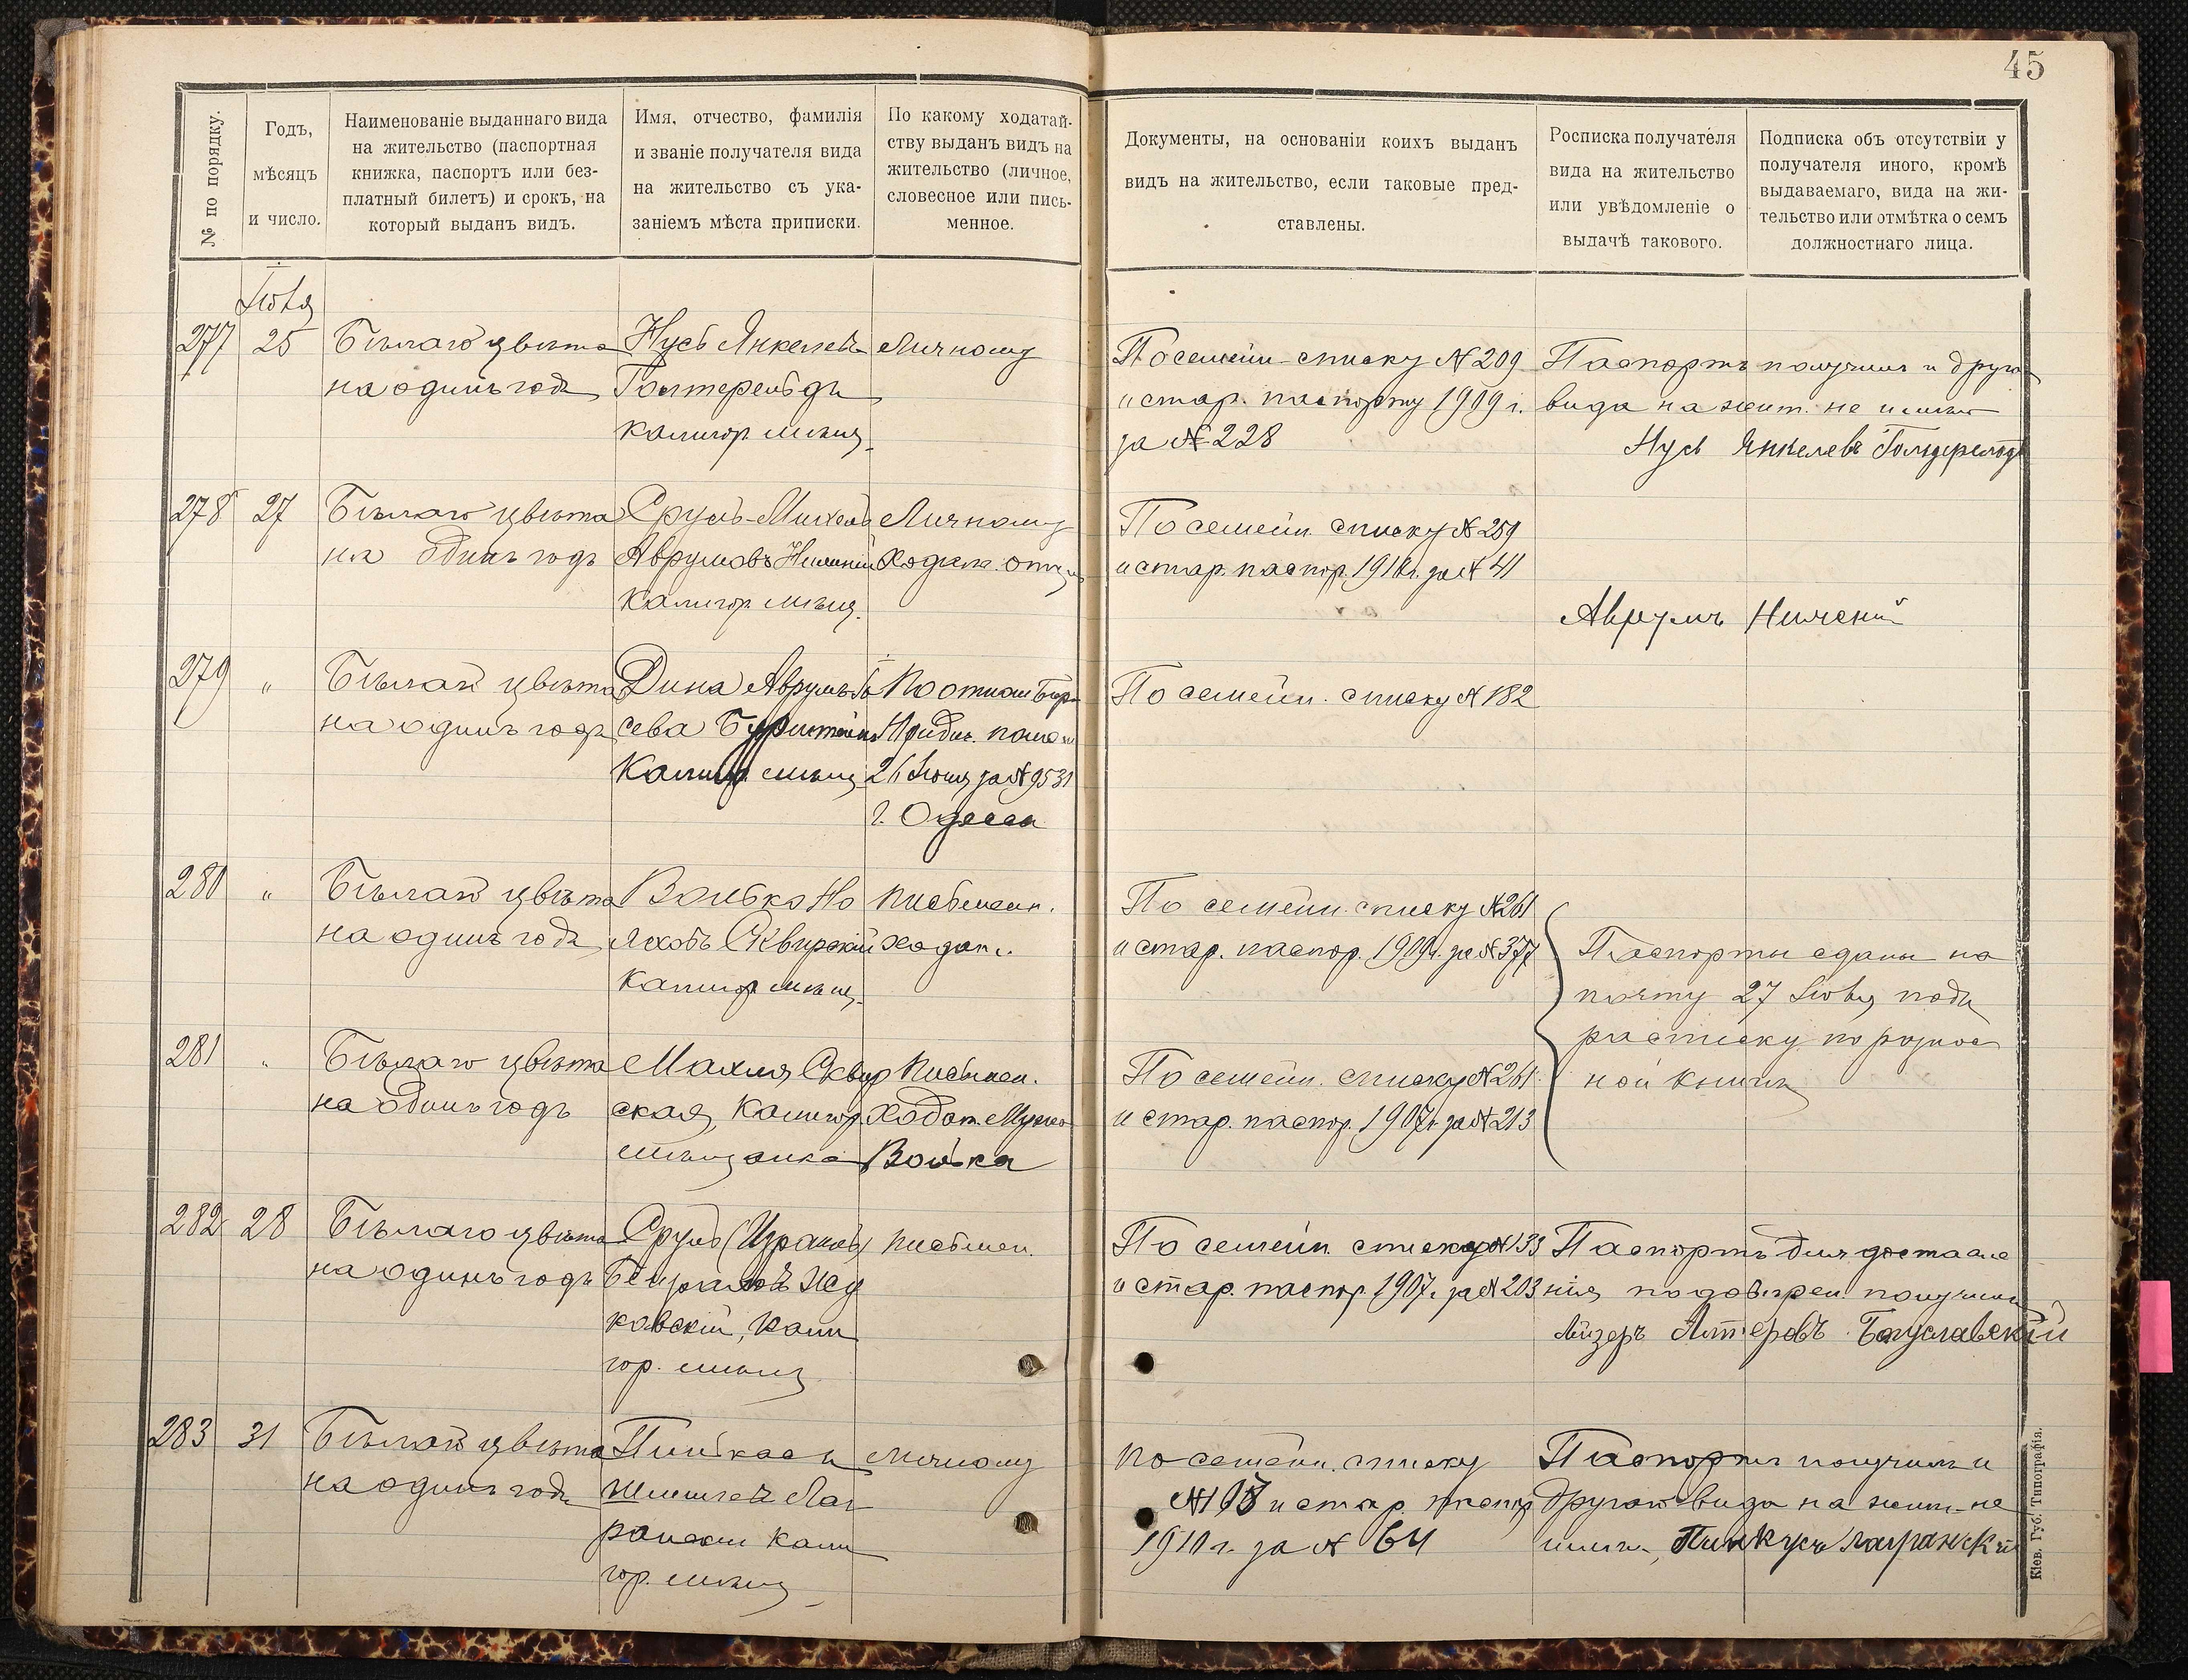 45
№ по порядку.
Годъ,
мѣсяцъ
и число.
Наименованіе выданнаго вида
на жительство (паспортная
книжка, паспортъ или без-
платный билетъ) и срокъ, на
который выданъ видъ.
Имя, отчество, фамилія
и званіе получателя вида
на жительство съ ука-
заніемъ мѣста приписки.
По какому ходатай-
ству выданъ видъ на
жительство (личное,
словесное или пись-
менное.
Документы, на основаніи коихъ выданъ
видъ на жительство, если таковые пред-
ставлены.
Росписка получателя
вида на жительство
или увѣдомленіе о
выдачѣ такового.
Подписка объ отсутствіи у
получателя иного, кромѣ
выдаваемаго, вида на жи-
тельство или отмѣтка о семъ
должностнаго лица.
277
25
Бѣлаго цвѣта
на одинъ годъ
Нусь Янкелевъ
калигор. мѣщ.
Личному
По семейн. списку № 209
и стар. паспорту 1909 г.
за № 228
Паспортъ получилъ и друго
вида на жит. не имѣю
Нусь Янкелевъ
278
27
Бѣлаго цвѣта
на одинъ годъ
Сруль-Михель
Аврумовъ
калигор. мѣщ.
Личному
ходат. отца
По семейн. списку № 259
и стар. паспор. 1910 г. за № 41
Аврумъ
279
"
Бѣлаго цвѣта
на одинъ годъ
Дина
калигор. мѣщ.
26 Іюля за № 9531
г. Одесса
По семейн. списку № 182
280
"
Бѣлаго цвѣта
на одинъ годъ
Волько Но
яховъ Сквирскій
калигор. мѣщ.
письмен.
ходат.
По семейн. списку № 261
и стар. паспор. 1909 г. за № 377
Паспорты сданы на
почту 27 Іюля подъ
расписку по разнос
ной книгѣ
281
"
Бѣлаго цвѣта
на одинъ годъ
Махля Сквир
ская, калигор.
мѣщанка
Письмен.
ходат. мужа
Волька
По семейн. списку № 261
и стар. паспор. 1907 г. за № 213
282
28
Бѣлаго цвѣта
на одинъ годъ
Сруль (Израиль)
ковскій, кали
гор. мѣщ.
письмен.
По семейн. списку № 133
и стар. паспор. 1907 г. за № 203
Паспортъ для доставле
нія по довѣрен. получилъ
Лейзеръ Алтеровъ Богуславскій
283
31
Бѣлаго цвѣта
на одинъ годъ
Пинькас
кали
гор. мѣщ.
личному
по семейн. списку
и стар. паспор
1910 г. за № 64
Паспортъ получилъ и
другого вида на жит. не
имѣю, Пинкусъ
Кіев. Губ. Типографія.